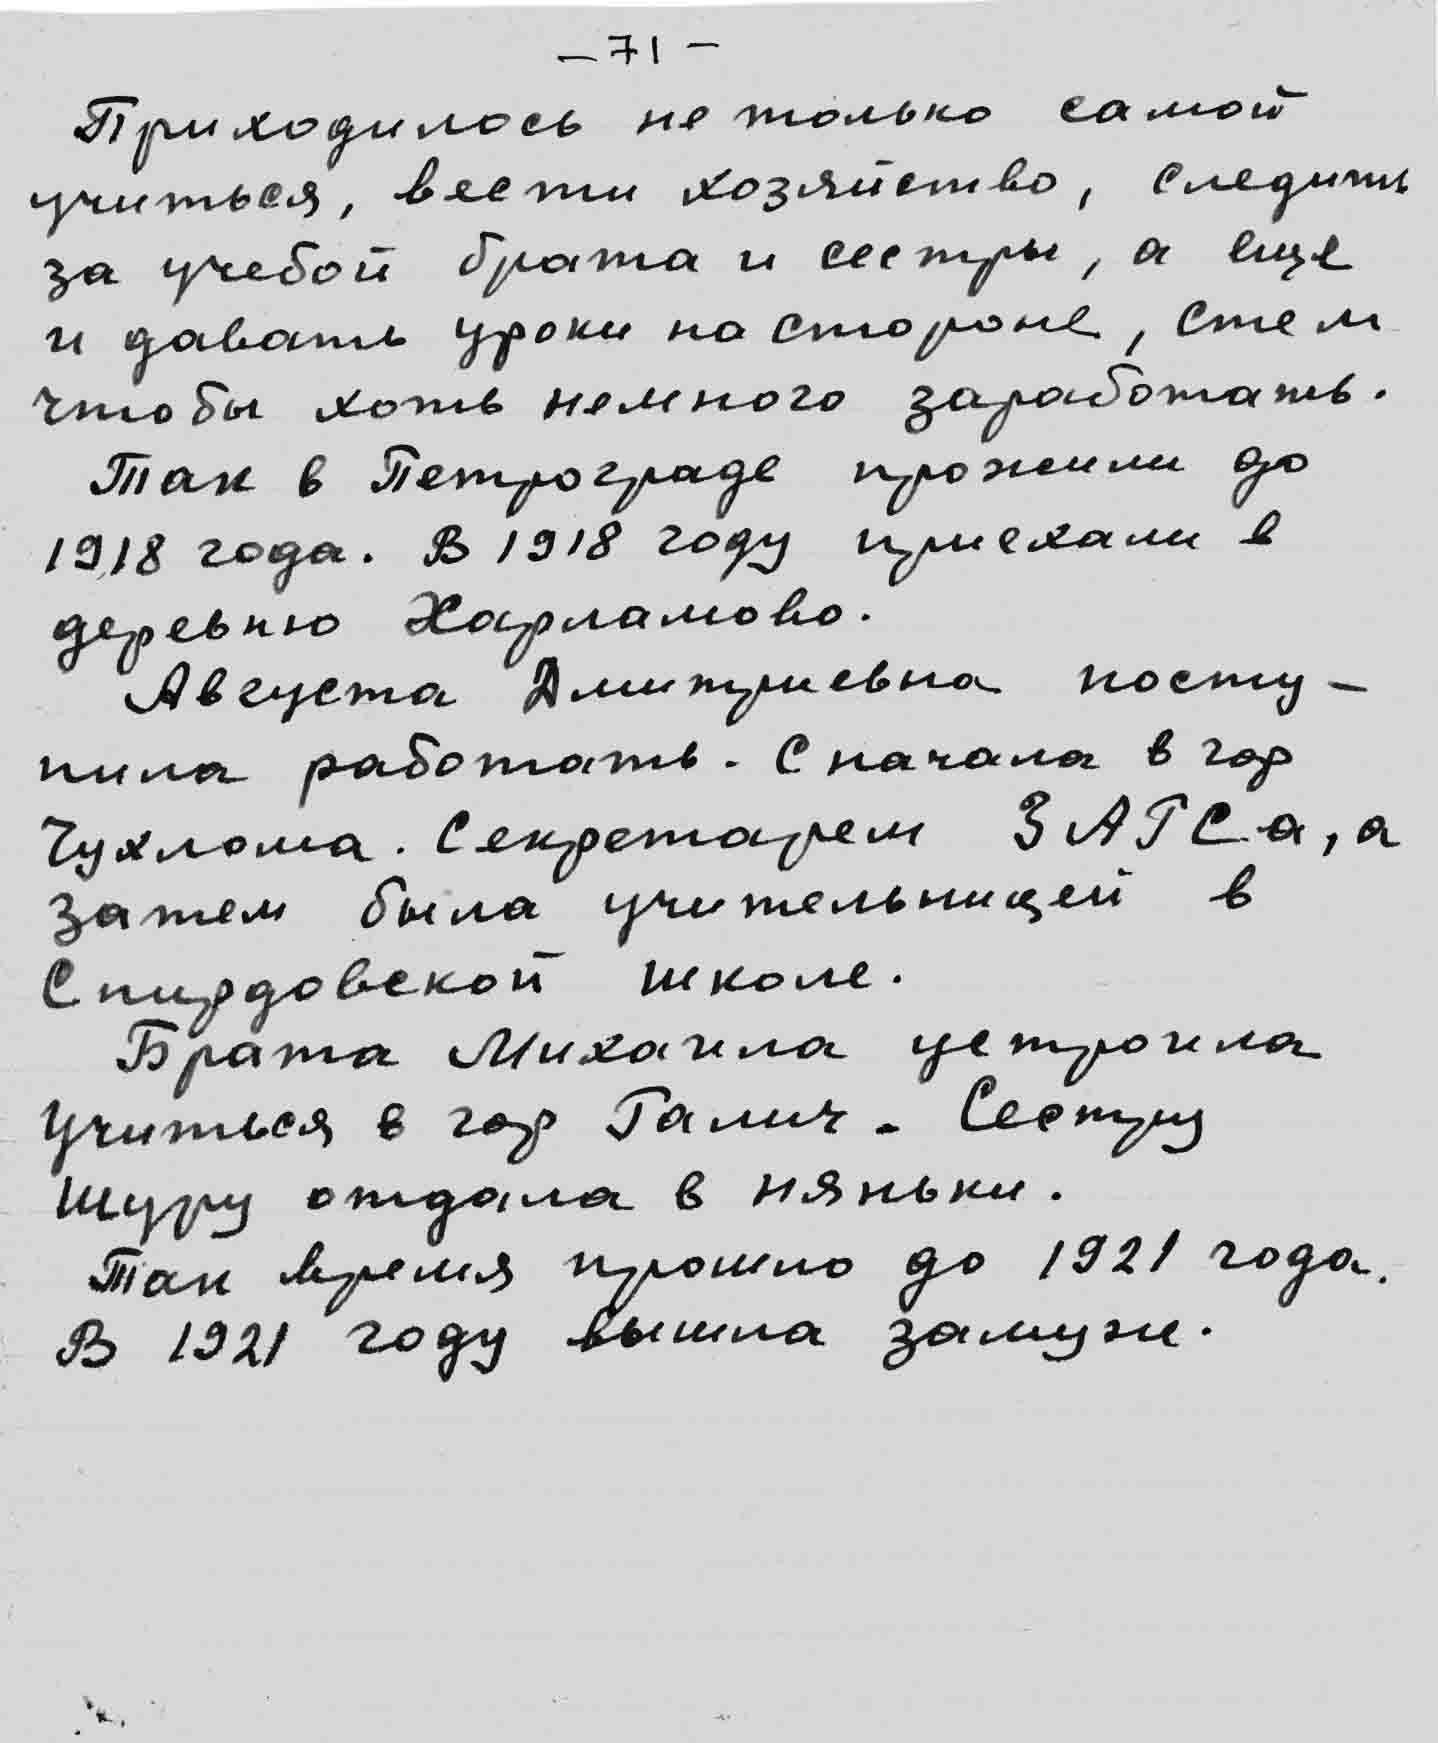 – 71 –
Приходилось не только самой
учиться, вести хозяйство, следить
за учебой брата и сестры, а еще
и давать уроки на стороне, с тем
чтобы хоть немного заработать.
Так в Петрограде прожили до
1918 года. В 1918 году приехали в
деревню Харламово.
Августа Дмитриевна посту-
пила работать. Сначала в гор
Чухлома. Секретарем ЗАГСа, а
затем была учительницей в
Спирдовской школе.
Брата Михаила устроила
учиться в гор Галич. Сестру
Шуру отдала в няньки.
Так время прошло до 1921 года.
В 1921 году вышла замуж.